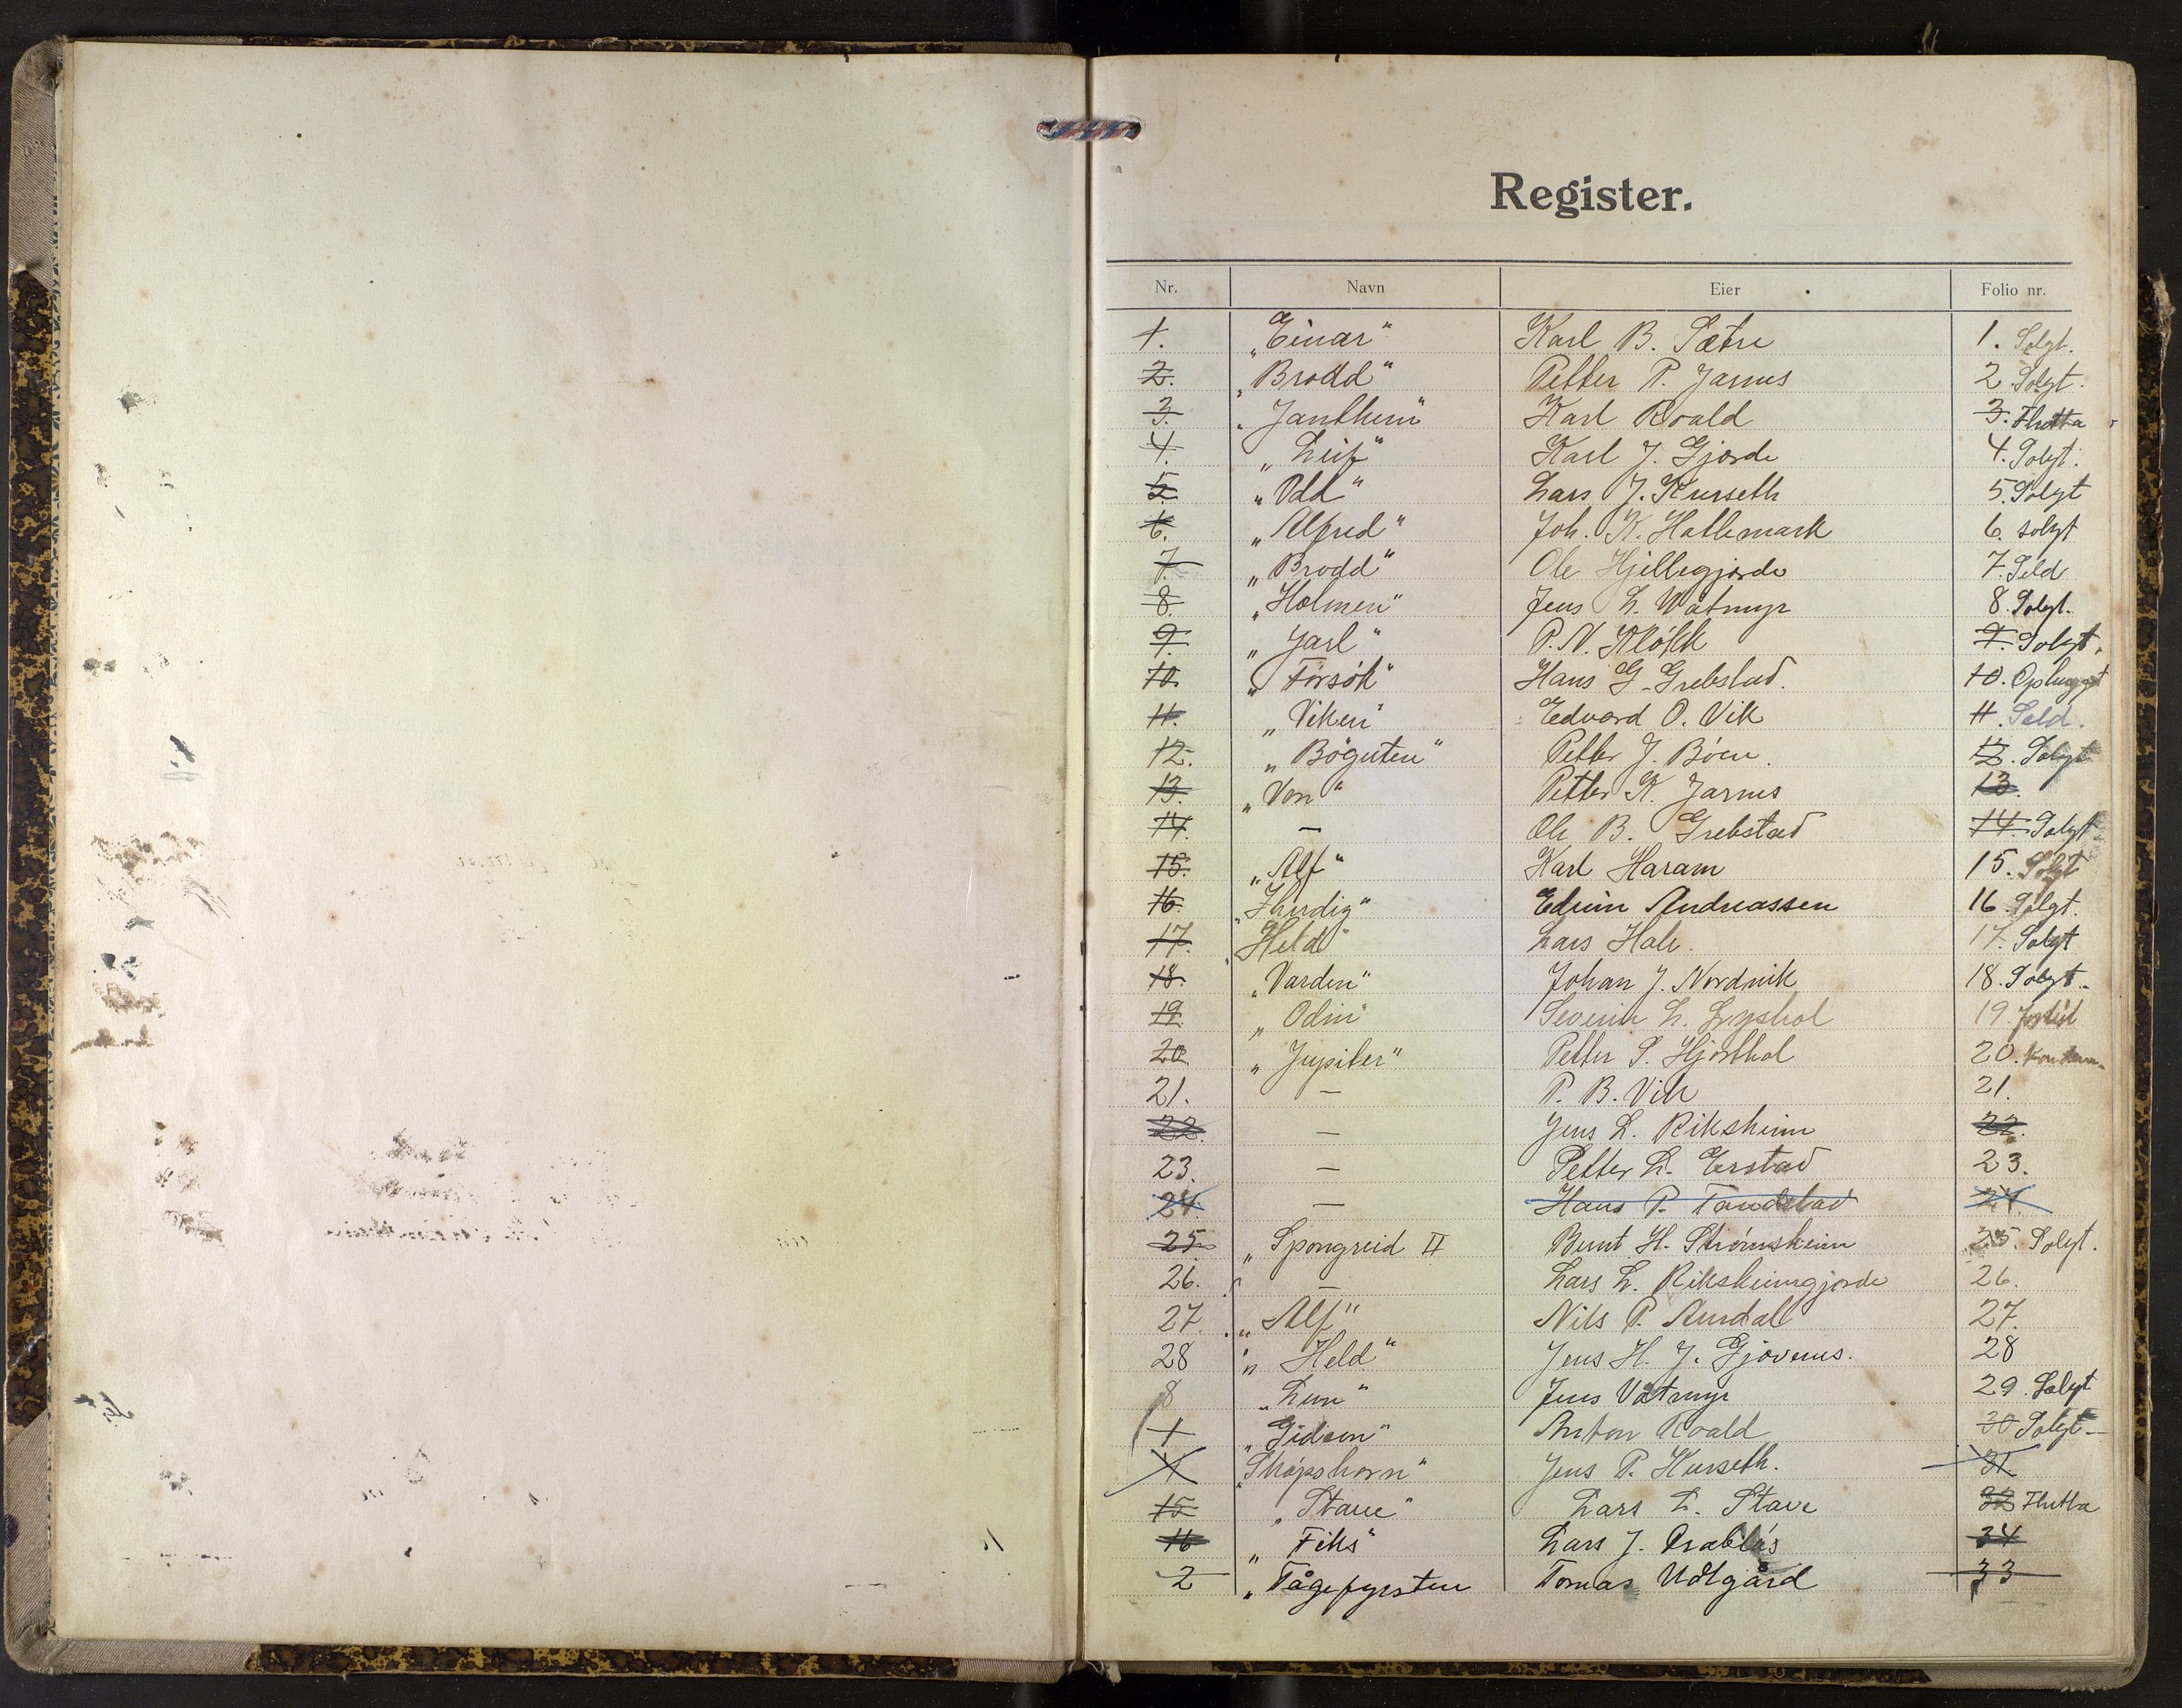 Register.
Nr. Navn Eier Folio nr.
1. „Einar" Karl B. Sætre 1. Solgt.
2. „Brodd" Petter P. Jarnes 2 Solgt.
3. „Janthum" Karl Roald 3. Flutta
4. „Leif" Karl J. Gjørde 4. Solgt.
5. „Odd" Lars J. Kurseth 5. Solgt
6. „Alfred" Joh. K. Hatlemark 6. solgt
7. „Brodd" Ole Hjellegjorde 7. Seld
8. „Holmen" Jens L. Våtmyr 8. Solgt.
9. „Jarl" P. N. Kløkk 9. Solgt.
10. „Forsøk" Hans G. Grebstad. 10. Ophugget
11. „Viken" Edvard O. Vik 11. Seld.
12. „Bøguten" Petter J. Bøen. 12. Solgt
13. „Von" Petter K. Jarnes 13.
14. — Ole B. Grebstad 14. Solgt
15. „Alf" Karl Haram 15. Solgt
16. „Hurdig" Edvin Andreassen 16 Solgt.
17. „Held" Lars Hale. 17. Solgt
18. „Varden" Johan J. Nordvik 18. Solgt.
19. „Odin" Severin L. Lyshol 19. Forlist
20 „Jupiter" Petter S. Hjorthol 20. Kondem.
21. — P. B. Vik 21.
22. — Jens L. Riksheim 22.
23. — Petter L. Erstad 23.
24. — Hans P. Tandstad 24.
25. „Spongreid II Bernt H. Strømsheim 25. Solgt.
26. „ — Lars L. Riksheimgjorde 26.
27. „Alf" Nils P. Aursdal 27.
28 „Held" Jens H. J. Gjøvenes. 28
8 „Lun" Jens Våtmyr 29. Solgt
1 „Gideon" Anton Roald 30 Solgt.
1 „Skopshorn" Jens P. Kurseth. 31
15 „Stave" Lars L. Stave 32 Flutta
16 „Fiks" Lars J. 34
2 „Tågefyrsten Tomas Udgård 33